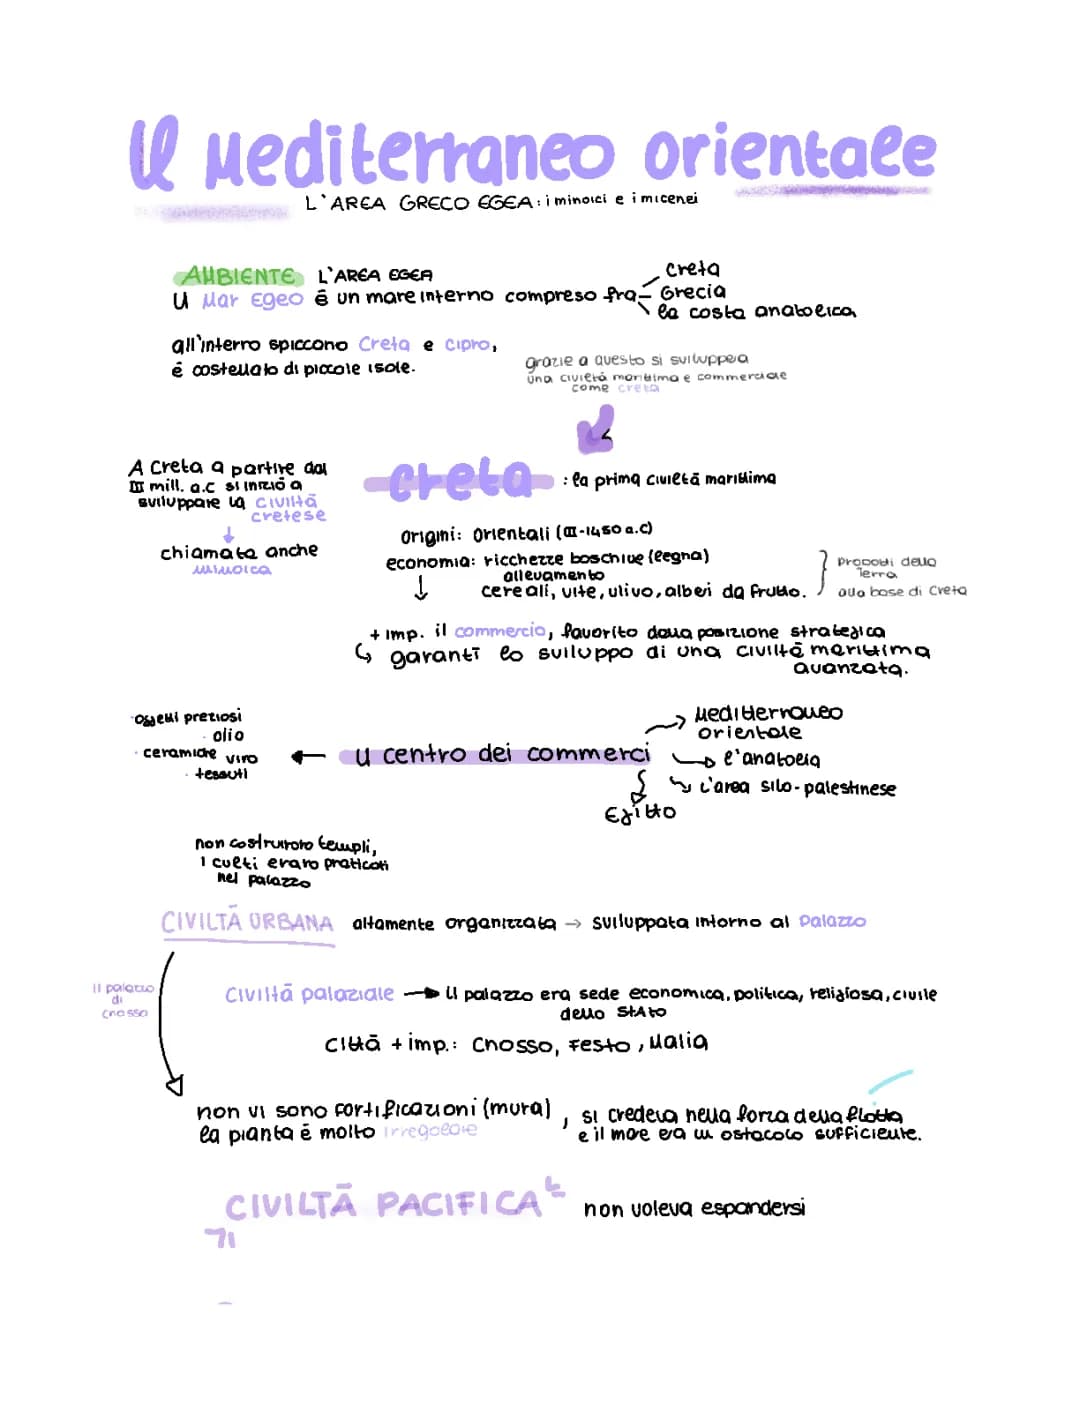 Il Mediterraneo orientale
L'AREA GRECO EGEA: i minoici e i micenei
AMBIENTE L'AREA EGEA
Il Mar Egeo è un mare interno compreso fra
Creta
Grecia
la costa anatolica
all'interno spiccano Creta e Cipro,
è costellato di piccole isole.
grazie a questo si sviluppera
una civiltà marittima e commerciale
come creta
A Creta a partire dal
III mill. a.c si iniziò a
sviluppare la civiltà
cretese
chiamata anche
minoica
creta : la prima civiltà marittima
origini: orientali (III-1450 a.C)
economia: ricchezze boschive (legna)
allevamento
cereali, vite, ulivo, alberi da frutto.
prodotti della
Terra
alla base di Creta
+ imp. il commercio, favorito dalla posizione strategica
garantì lo sviluppo di una civiltà marittima
avanzata.
oggetti preziosi
olio
ceramiche
vino
tessuti
il centro dei commerci
Mediterraneo
orientale
l'anatolia
L'area siro-palestinese
Egitto
non costruirono templi,
i culti erano praticati
nel palazzo
CIVILTÀ URBANA altamente organizzata → sviluppata intorno al Palazzo
il palazzo
di
cnosso
Civiltà palaziale → il palazzo era sede economica, politica, religiosa, civile
dello stato
città + imp.: Cnosso, Festo, Malia
non vi sono fortificazioni (mura),
la pianta è molto irregolare
si credeva nella forza della flotta
e il mare era un ostacolo sufficiente.
CIVILTÀ PACIFICA
non voleva espandersi